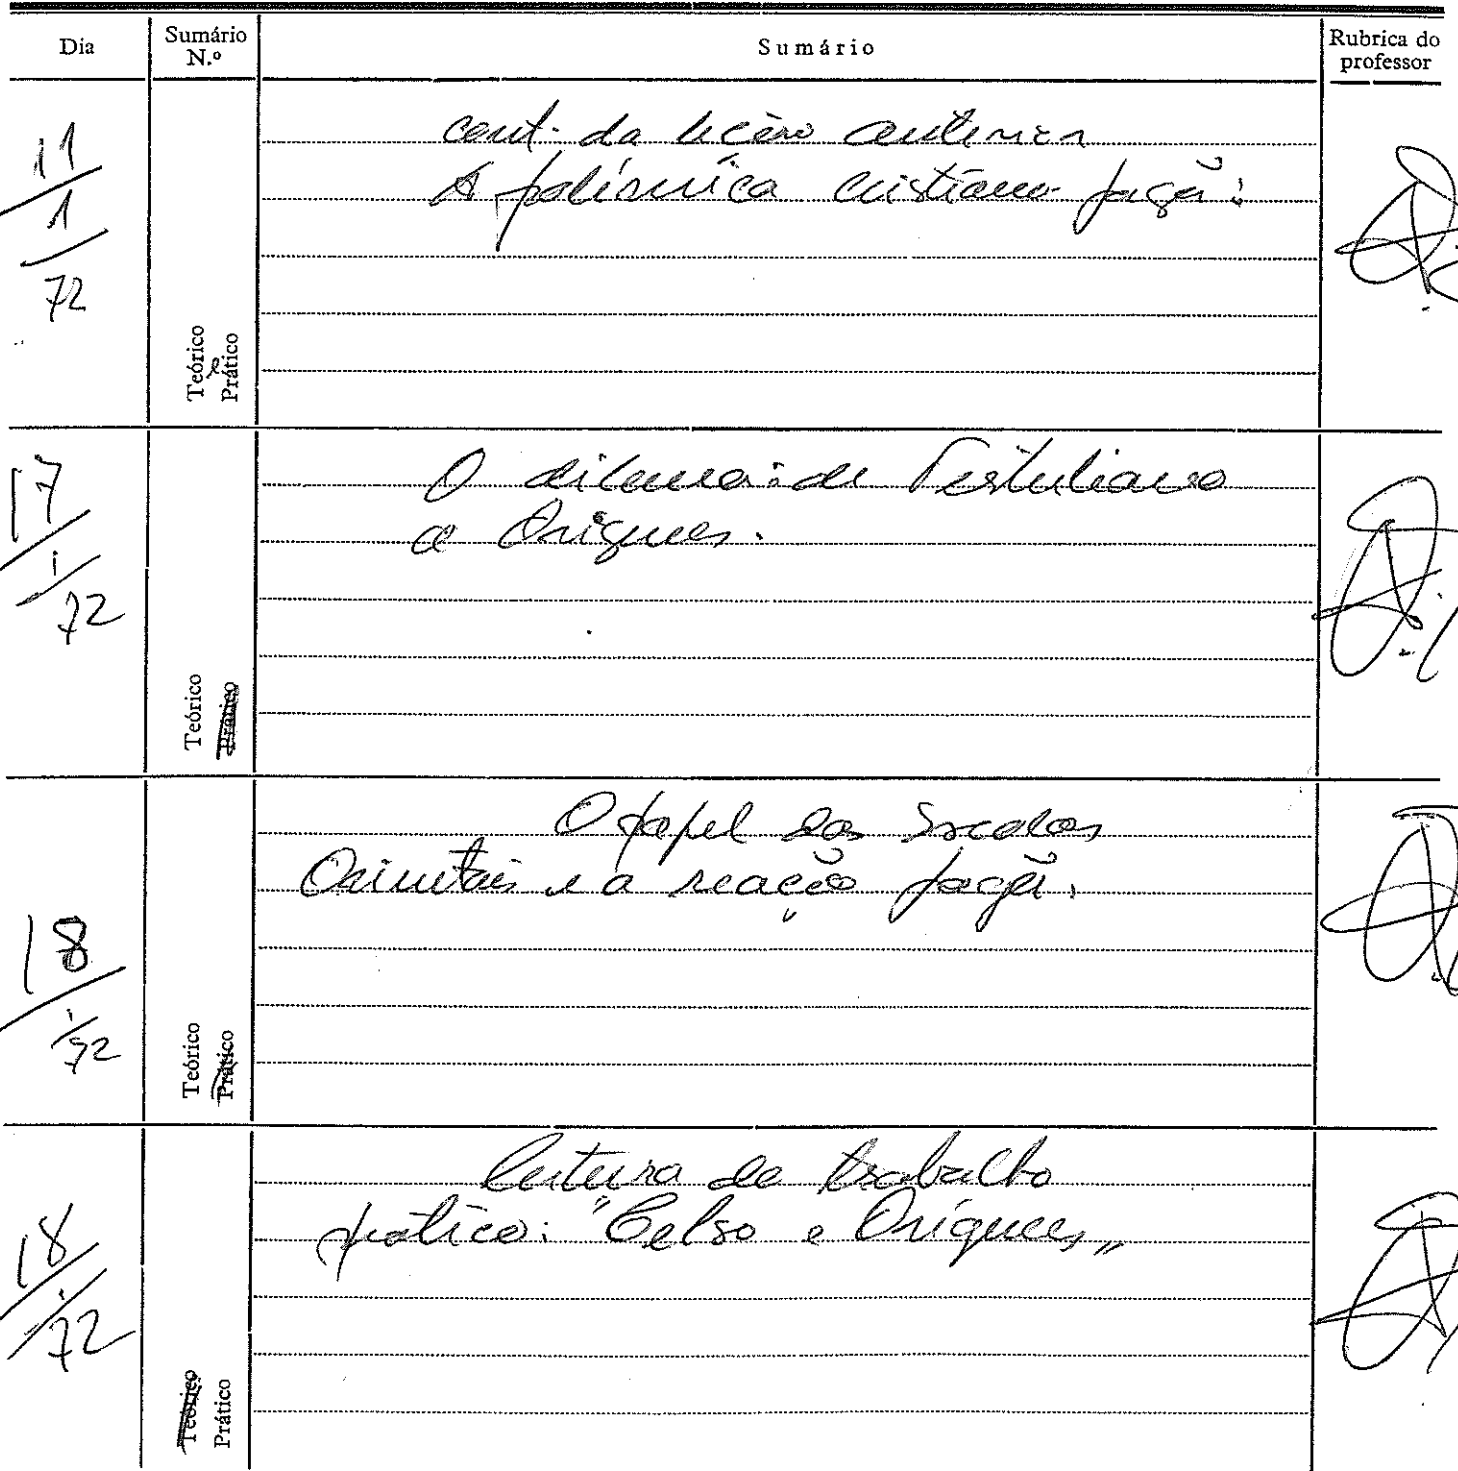 Dia
Sumário N.º
Sumário
Rubrica do professor
11/1/72
Teórico e Prático
cont. da lição anterior
A polémica cristiano-pagã:
17/1/72
Teórico Prático
O dilema: de Tertuliano
a Orígenes.
18/1/72
Teórico Prático
O papel das Escolas
Orientais e a reação pagã.
18/1/72
Teórico Prático
leitura de trabalho
prático: "Celso e Orígenes"